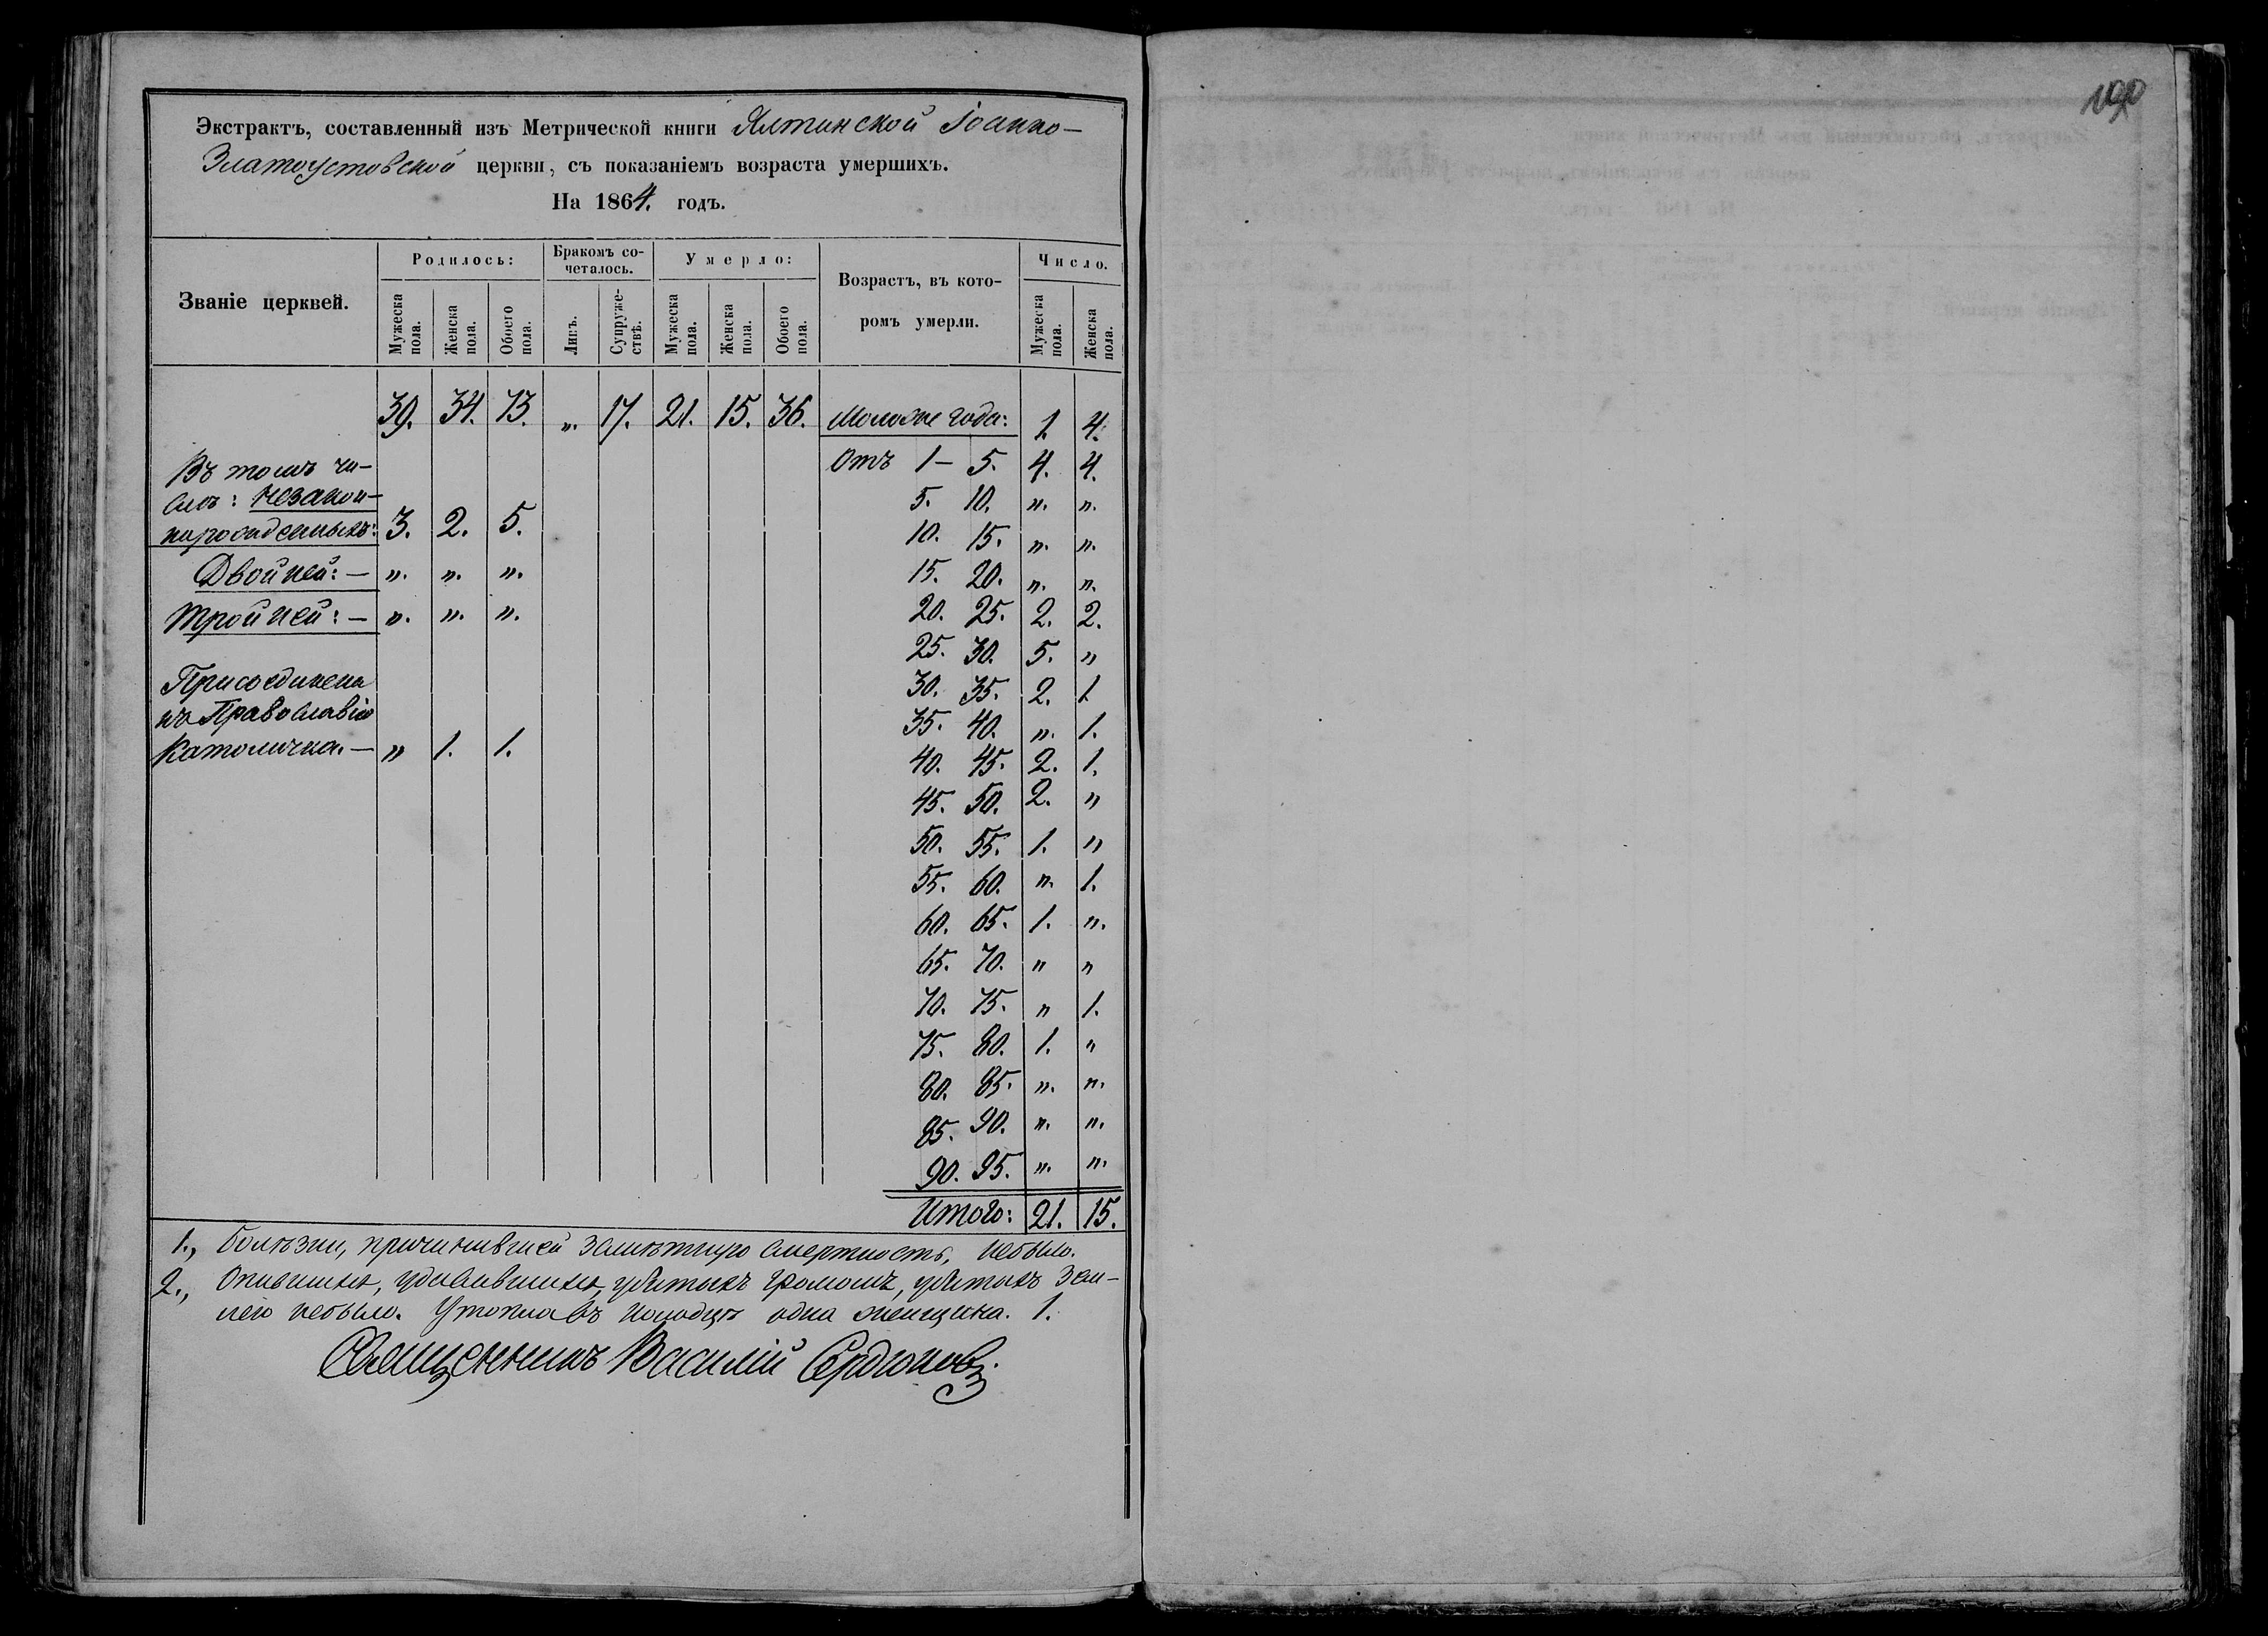 190
Экстрактъ, составленный изъ Метрической книги Ялтинской Іоанно-
Златоустовской церкви, съ показаніемъ возраста умершихъ.
На 1864. годъ.
Званіе церквей. Родилось: Бракомъ со-четалось. Умерло: Возрастъ, въ кото-ромъ умерли. Число.
Мужеска пола. Женска пола. Обоего пола. Ликъ. Супруже-ствъ. Мужеска пола. Женска пола. Обоего пола. Мужеска пола. Женска пола.
39. 34. 73. „. 17. 21. 15. 36. Моложе года: 1. 4.
Отъ 1 – 5. 4. 4.
Въ томъ чи-
слѣ: незакон-
5. 10. „. „.
норожденныхъ: 3. 2. 5.
10. 15. „. „.
Двойней: – „. „. „.
15. 20. „. „.
Тройней: – „. „. „.
20. 25. 2. 2.
25. 30. 5. „
Присоединена
30. 35. 2. 1
къ Православію
35. 40. „. 1.
Католичка. – „ 1. 1.
40. 45. 2. 1.
45. 50. 2. „
50. 55. 1. „
55. 60. „. 1.
60. 65. 1. „.
65. 70. „ „
70. 75. „ 1.
75. 80. 1. „
80. 85. „. „.
85. 90. „. „.
90. 95. „. „.
Итого: 21. 15.
1., Болѣзни, причинившей замѣтную смертность, небыло.
2., Опившихся, удавившихся, убитыхъ громомъ, убитыхъ зем-
лею небыло. Утопла въ колодцѣ одна женщина. 1.
Священникъ Василій